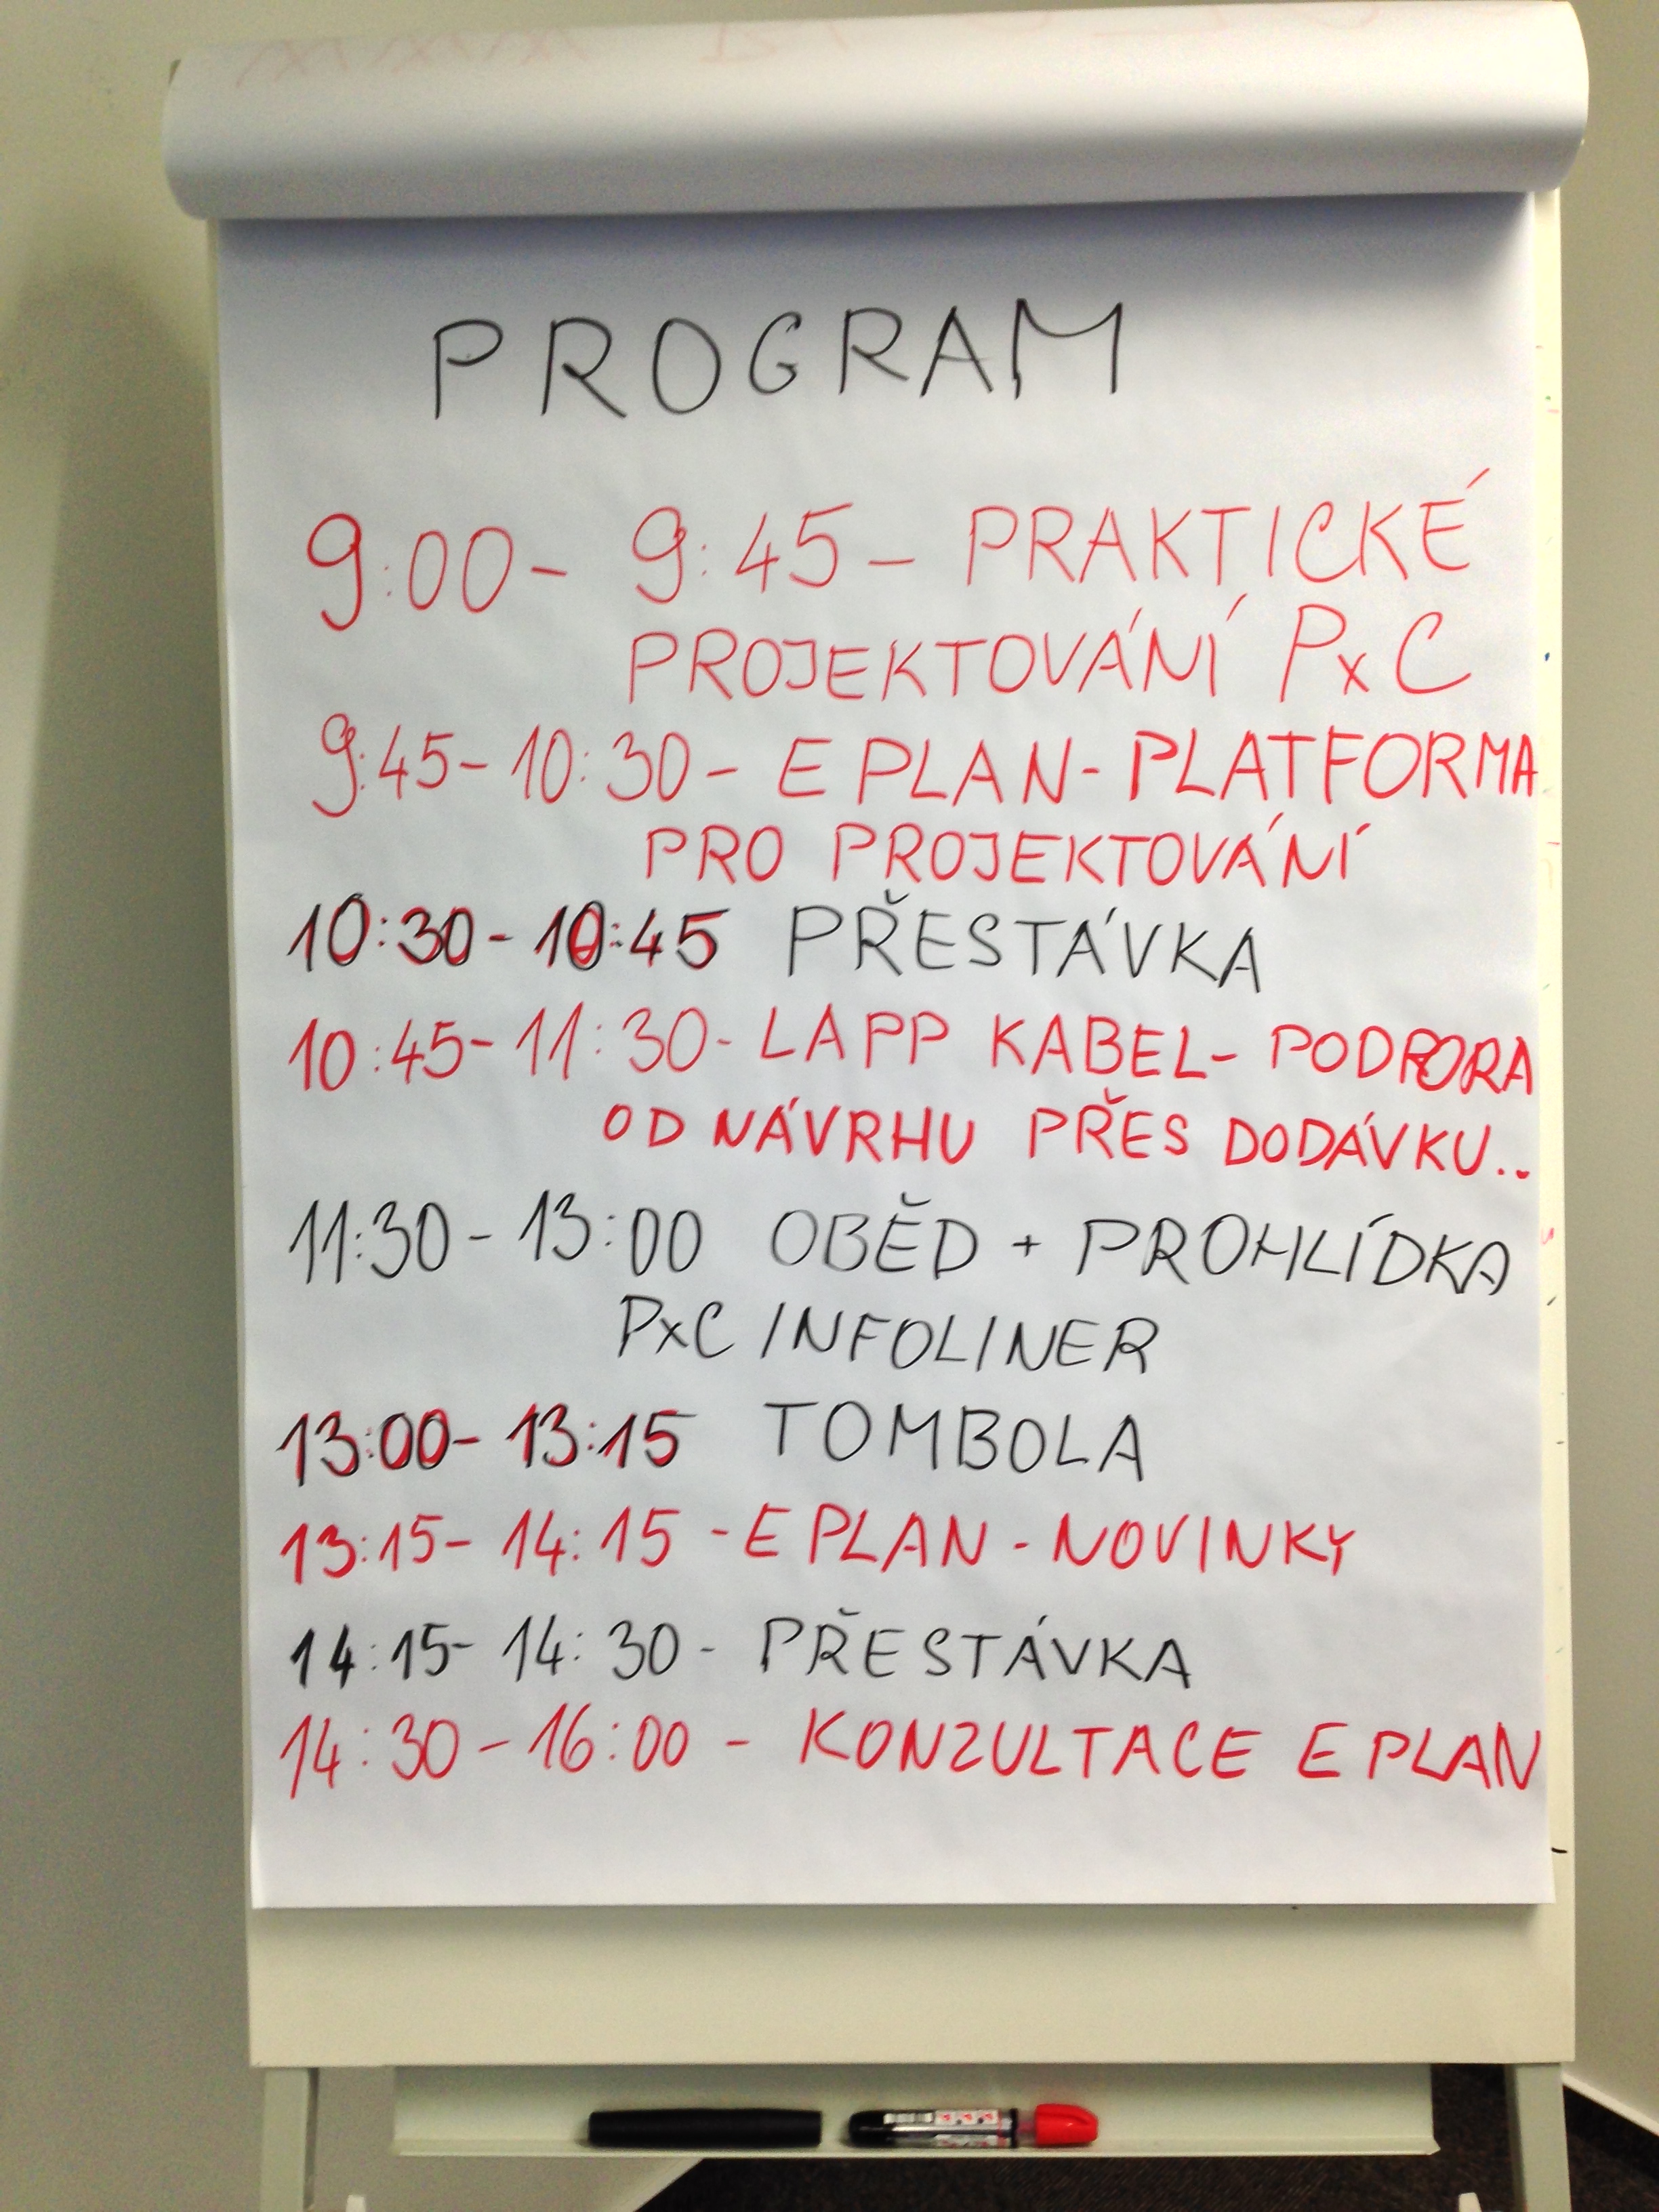 PROGRAM
9:00 - 9:45 - PRAKTICKÉ
PROJEKTOVÁNÍ PxC
9:45 - 10:30 - EPLAN - PLATFORMA
PRO PROJEKTOVÁNÍ
10:30 - 10:45 PŘESTÁVKA
10:45 - 11:30 - LAPP KABEL - PODPORA
OD NÁVRHU PŘES DODÁVKU..
11:30 - 13:00 OBĚD + PROHLÍDKA
PxC INFOLINER
13:00 - 13:15 TOMBOLA
13:15 - 14:15 - EPLAN - NOVINKY
14:15 - 14:30 - PŘESTÁVKA
14:30 - 16:00 - KONZULTACE EPLAN